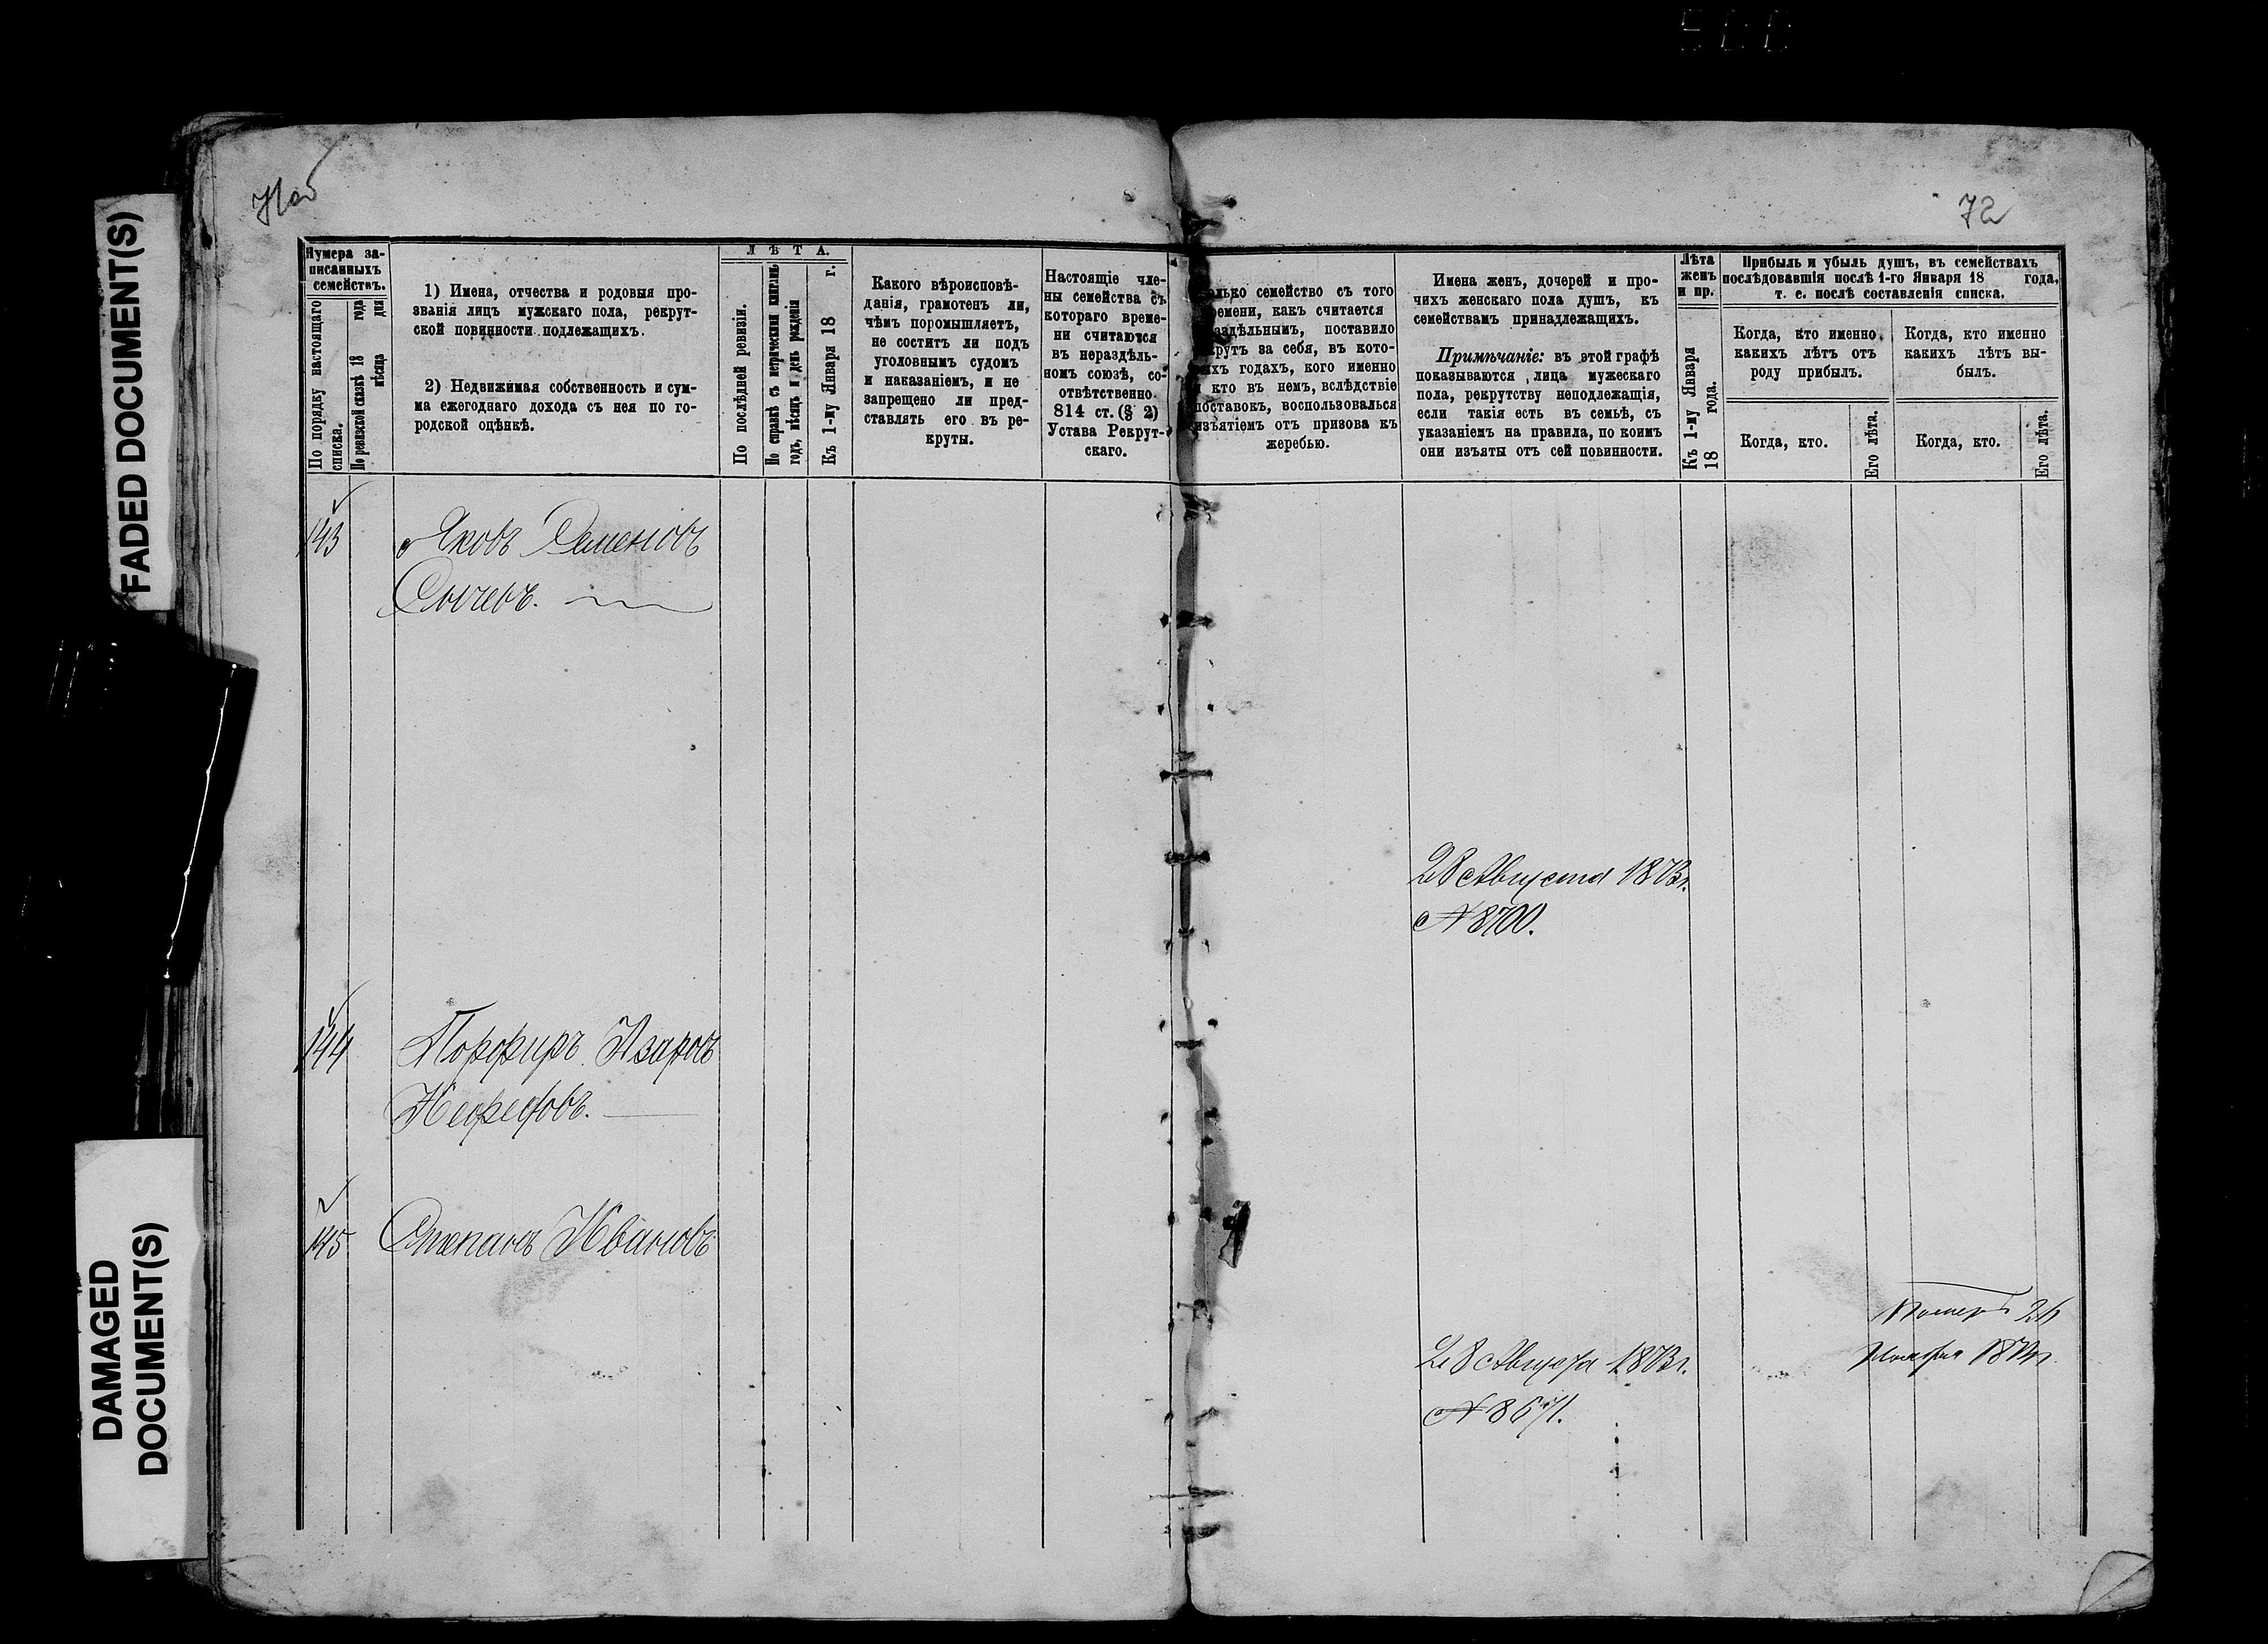 500
FADED DOCUMENT(S)
DAMAGED
DOCUMENT(S)
72
Нумера за-
писанныхъ
семействъ.
По порядку настоящаго
списка.
По ревизской сказкѣ 18 года
мѣсяца дня
1) Имена, отчества и родовыя про-
званія лицъ мужскаго пола, рекрут-
ской повинности подлежащихъ.
2) Недвижимая собственность и сум-
ма ежегоднаго дохода съ нея по го-
родской оцѣнкѣ.
ЛѢТА.
По послѣдней ревизіи.
По справкѣ съ метрическими книгами
годъ, мѣсяцъ и день рожденія
Къ 1-му Января 18 г.
Какого вѣроисповѣ-
данія, грамотенъ ли,
чѣмъ поромышляетъ,
не соститъ ли подъ
уголовнымъ судомъ
и наказаніемъ, и не
запрещено ли пред-
ставлять его въ ре-
круты.
Настоящіе чле-
ны семейства съ
котораго време-
ни считаются
въ нераздѣль-
номъ союзѣ, со-
отвѣтственно
814 ст. (§ 2)
Устава Рекрут-
скаго.
олько семейство съ того
ремени, какъ считается
аздѣльнымъ, поставило
крутъ за себя, въ кото-
ыхъ годахъ, кого именно
кто въ немъ, вслѣдствіе
поставокъ, воспользовался
изъятіемъ отъ призова къ
жеребью.
Имена женъ, дочерей и про-
чихъ женскаго пола душъ, къ
семействамъ принадлежащихъ.
Примѣчаніе: въ этой графѣ
показываются лица мужескаго
пола, рекрутству неподлежащія,
если такія есть въ семьѣ, съ
указаніемъ на правила, по коимъ
они изъяты отъ сей повинности.
Лѣта
женъ
и пр.
Къ 1-му Января
18 года.
Прибыль и убыль душъ, въ семействахъ
послѣдовавшія послѣ 1-го Января 18 года,
т. е. послѣ составленія списка.
Когда, кто именно
какихъ лѣтъ отъ
роду прибылъ.
Когда, кто.
Его лѣта.
Когда, кто именно
какихъ лѣтъ вы-
былъ.
Когда, кто.
Его лѣта.
143 Яковъ Семеновъ
Сычевъ.
28 Августа 1873 г.
№ 8700.
144 Порфиръ Азаровъ
Нефедовъ.
145 Степанъ Ивановъ
Померъ
28 Августа 1873 г.
№ 8671.